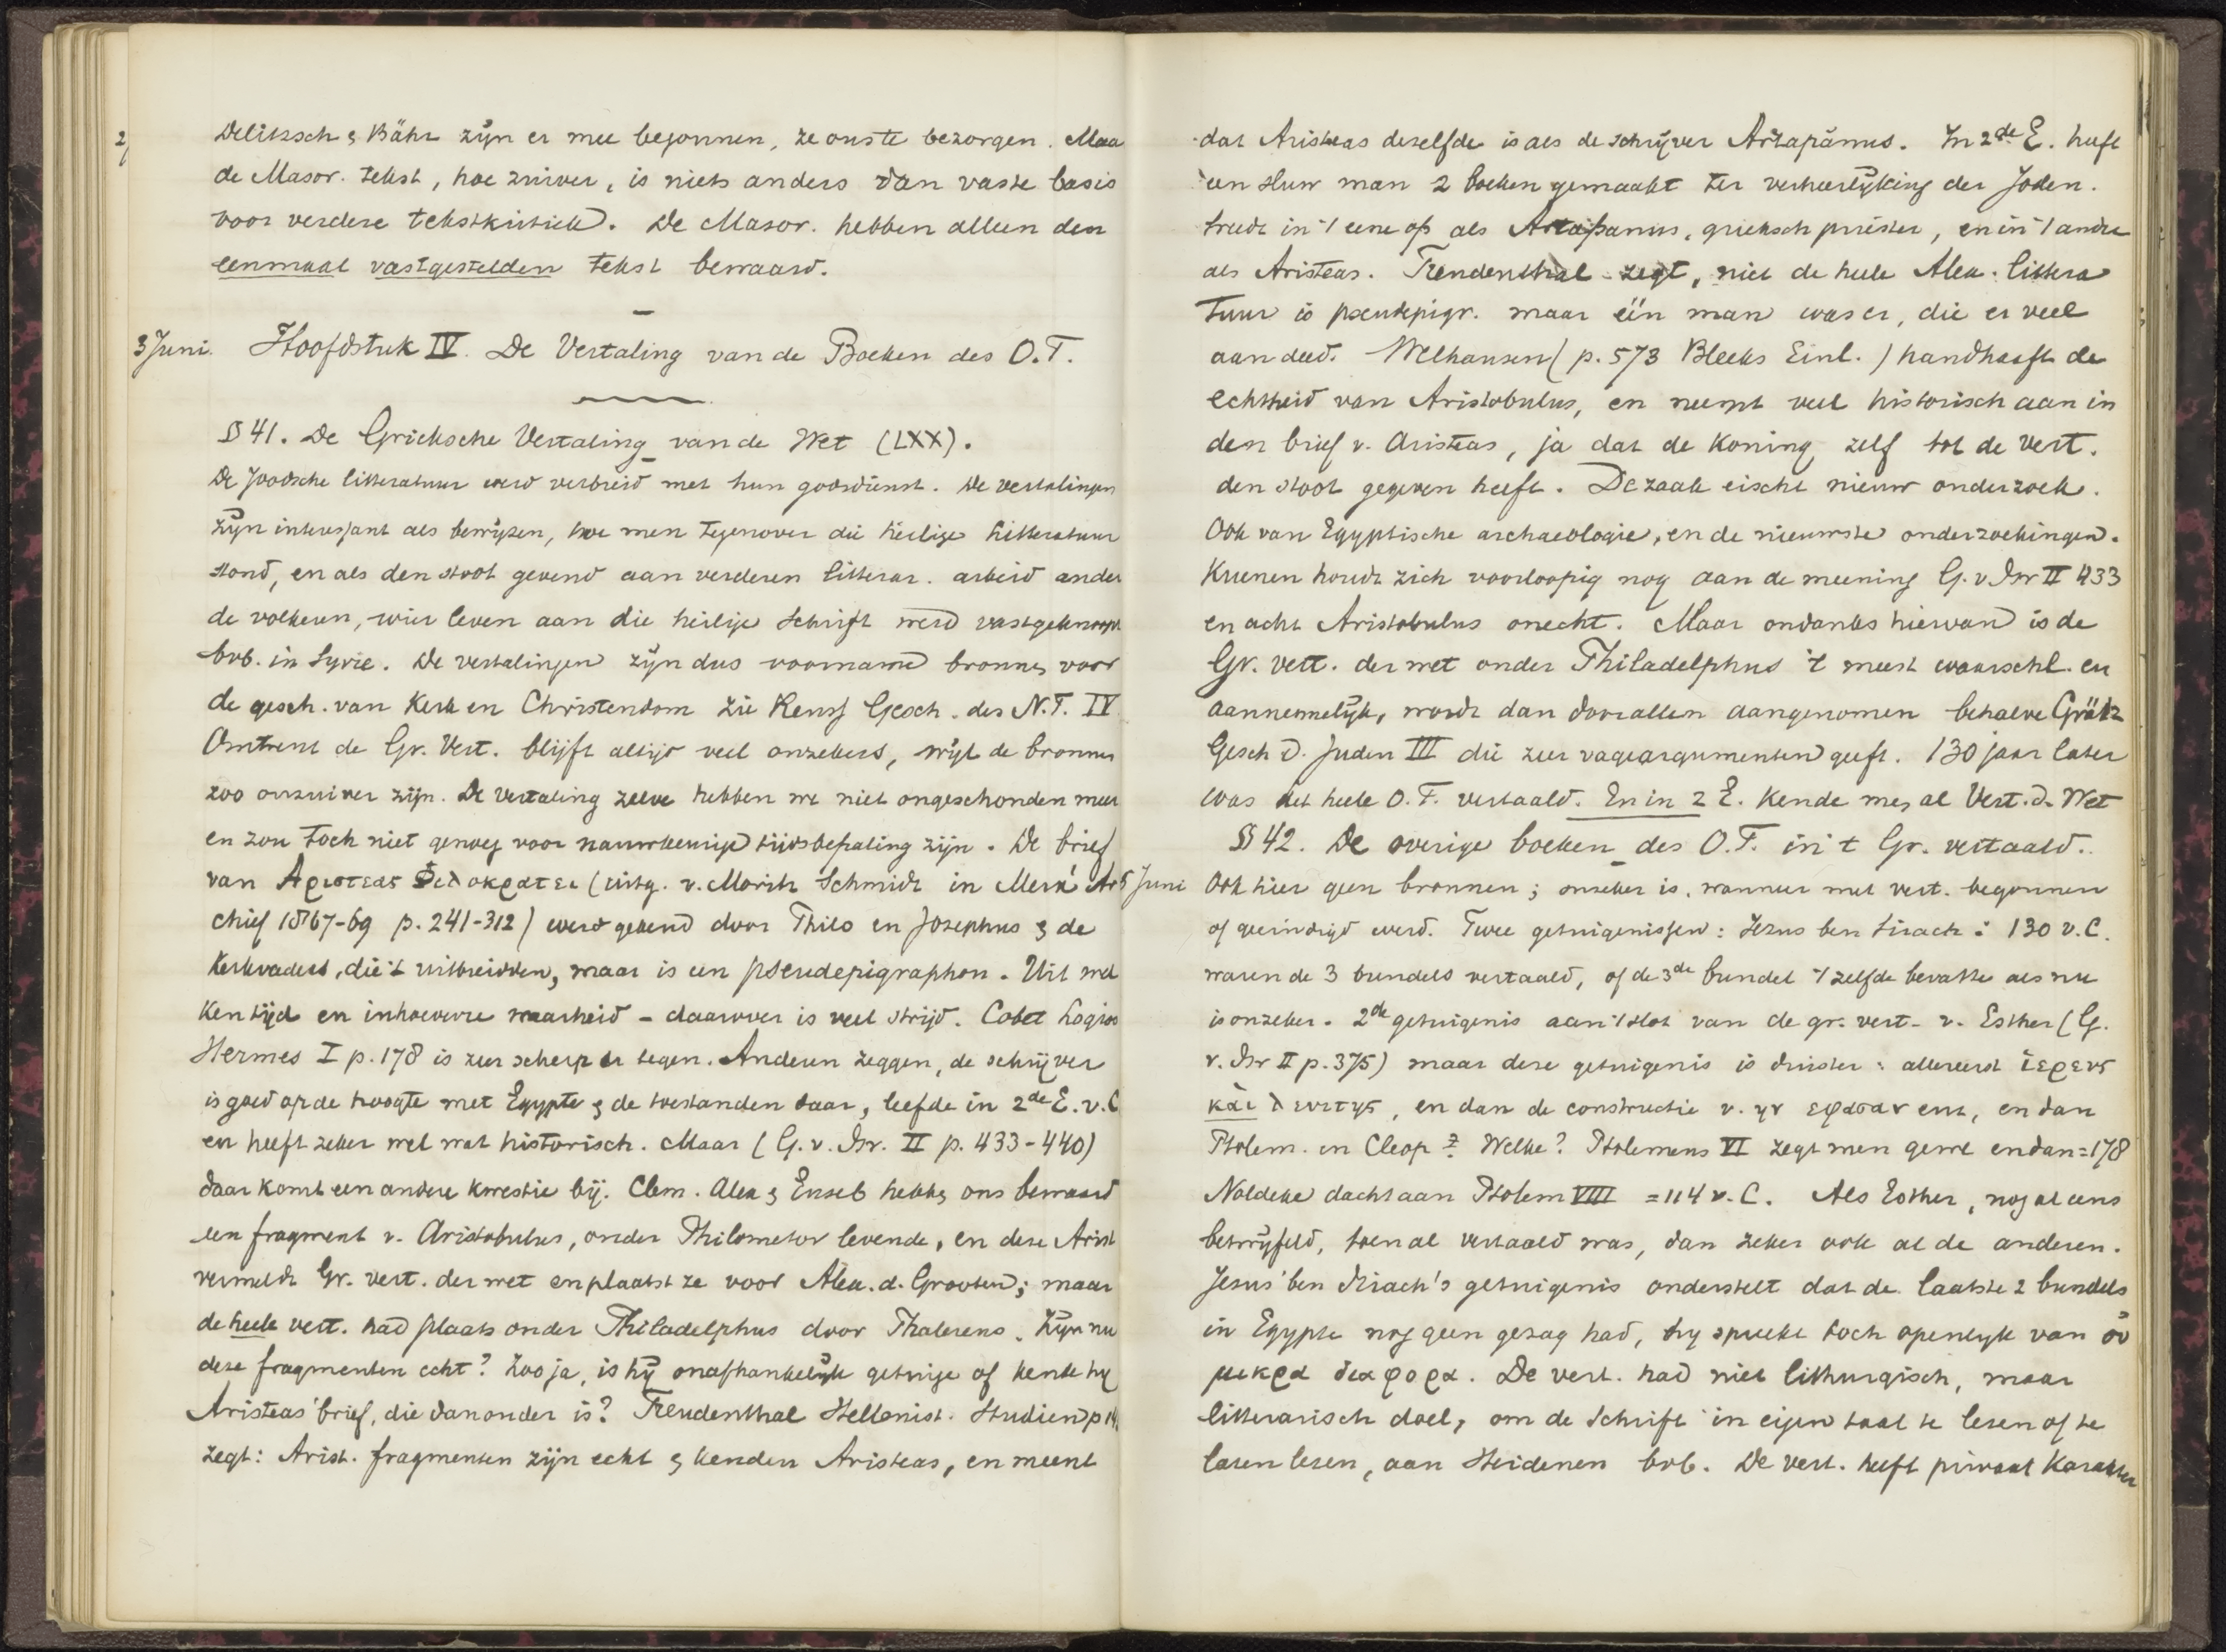 2/
Delitzsch & Bähr zijn er mee begonnen, ze ons te bezorgen. Maa
de Masor. tekst, hoe zuiver, is niets anders dan vaste basis
voor verdere tekstkritiek. De Masor. hebben alleen den
eenmaal vastgestelden tekst bewaard.
3 Juni. Hoofdstuk IV. De Vertaling van de Boeken des O.T.
§ 41. De Grieksche Vertaling van de Wet (LXX).
De Joodsche litteratuur werd verbreid met hun godsdienst. De vertalingen
zijn interessant als bewijzen, hoe men tegenover die heilige litteratuur
stond, en als den stoot gevend aan verderen litterar. arbeid ander
de volkeren, wier leven aan die heilige Schrift werd vastgeknoopt
bvb. in Syrie. De vertalingen zijn dus voorname bronnen voor
de gesch. van Kerk en Christendom zie Reuss Gesch. des N.T. IV
Omtrent de Gr. Vert. blijft altijd veel onzekers, wijl de bronnen
zoo onzuiver zijn. De vertaling zelve hebben we niet ongeschonden meer
en zou toch niet genoeg voor nauwkeurige tijdsbepaling zijn. De brief
van Αριστεας Φιλοκρατει (uitg. v. Moritz Schmidt in Merx' Ar
chief 1867-69 p. 241-312) werd gekend door Philo en Josephus & de
Kerkvaders, die 't uitbreidden, maar is een pseudepigraphon. Uit wel
ken tijd en inhoeverre waarheid - daarover is veel strijd. Cobet Logios
Hermes I p. 178 is zeer scherp er tegen. Anderen zeggen, de schrijver
is goed op de hoogte met Egypte & de toestanden daar, leefde in 2de E. v. C
en heeft zeker wel wat historisch. Maar (G. v. Isr. II p. 433-440)
daar komt een andere kwestie bij. Clem. Alex & Euseb hebben ons bewaard
een fragment v. Aristobulus, onder Philometor levende, en deze Arist
vermeldt Gr. vert. der wet en plaatst ze voor Alex. d. Grooten; maar
de heele vert. had plaats onder Philadelphus door Phalereus. Zijn nu
deze fragmenten echt? Zoo ja, is hij onafhankelijk getuige of kende hij
Aristeas' brief, die dan ouder is? Freudenthal Hellenist. Studien p 14
zegt: Arist. fragmenten zijn echt & kenden Aristeas, en meent
dat Aristeas dezelfde is als de schrijver Artapánus. In 2de E. heeft
een sluw man 2 boeken gemaakt ter verheerlijking der Joden.
treedt in 't eene op als Artapanus, grieksch priester, en in 't andre
als Aristeas. Freudenthal zegt, niet de heele Alex. littera
tuur is pseudepigr. maar één man was er, die er veel
aan deed. Welhausen (p. 573 Bleeks Einl.) handhaaft de
echtheid van Aristobulus, en neemt veel historisch aan in
den brief v. Aristeas, ja dat de Koning zelf tot de vert.
den stoot gegeven heeft. De zaak eischt nieuw onderzoek.
Ook van Egyptische archaeologie, en de nieuwste onderzoekingen.
Kuenen houdt zich voorloopig nog aan de meening G. v. Isr II 433
en acht Aristobulus onecht. Maar ondanks hiervan is de
Gr. vert. der wet onder Philadelphus 't meest waarschl. en
aannemelijk, wordt dan door allen aangenomen behalve Grätz
Gesch d. Juden III die zeer vage argumenten geeft. 130 jaar later
was het heele O.T. vertaald. En in 2 E. kende men al Vert. d. Wet
§ 42. De overige boeken des O.T. in 't Gr. vertaald.
5 Juni Ook hier geen bronnen; onzeker is, wanneer met vert. begonnen
of geeindigd werd. Twee getuigenissen: Jezus ben Sirach: 130 v.C.
waren de 3 bundels vertaald, of de 3de bundel 't zelfde bevatte als nu
is onzeker. 2de getuigenis aan 't slot van de gr. vert. v. Esther (G.
v. Isr II p. 375) maar deze getuigenis is duister: allereerst ἱερευς
και λευιτης, en dan de constructie v. ην εφασαν enz, en dan
Ptolem. en Cleop? Welke? Ptolemeus VI zegt men gewl en dan = 178
Noldeke dacht aan Ptolem VIII = 114 v. C. Als Esther, nog al eens
betwijfeld, toen al vertaald was, dan zeker ook al de anderen.
Jesus ben Sirach's getuigenis onderstelt dat de laatste 2 bundels
in Egypte nog geen gezag had, hij spreekt toch openlijk van οὐ
μικρα διαφορα. De vert. had niet lithurgisch, maar
litterarisch doel, om de Schrift in eigen taal te lezen of te
laten lezen, aan Heidenen bvb. De vert. heeft privaat Karakter